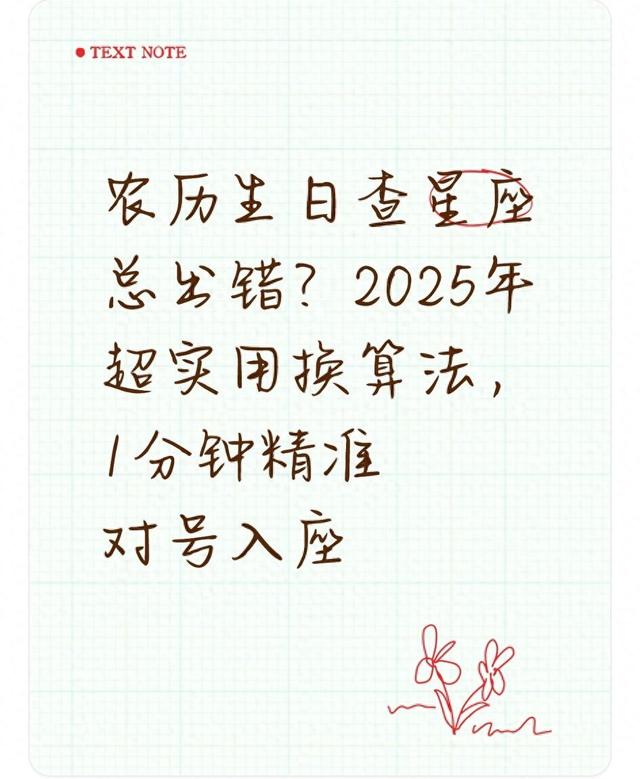 TEXT NOTE
农历生日查星座
总出错？2025年
超实用换算法，
1分钟精准
对号入座